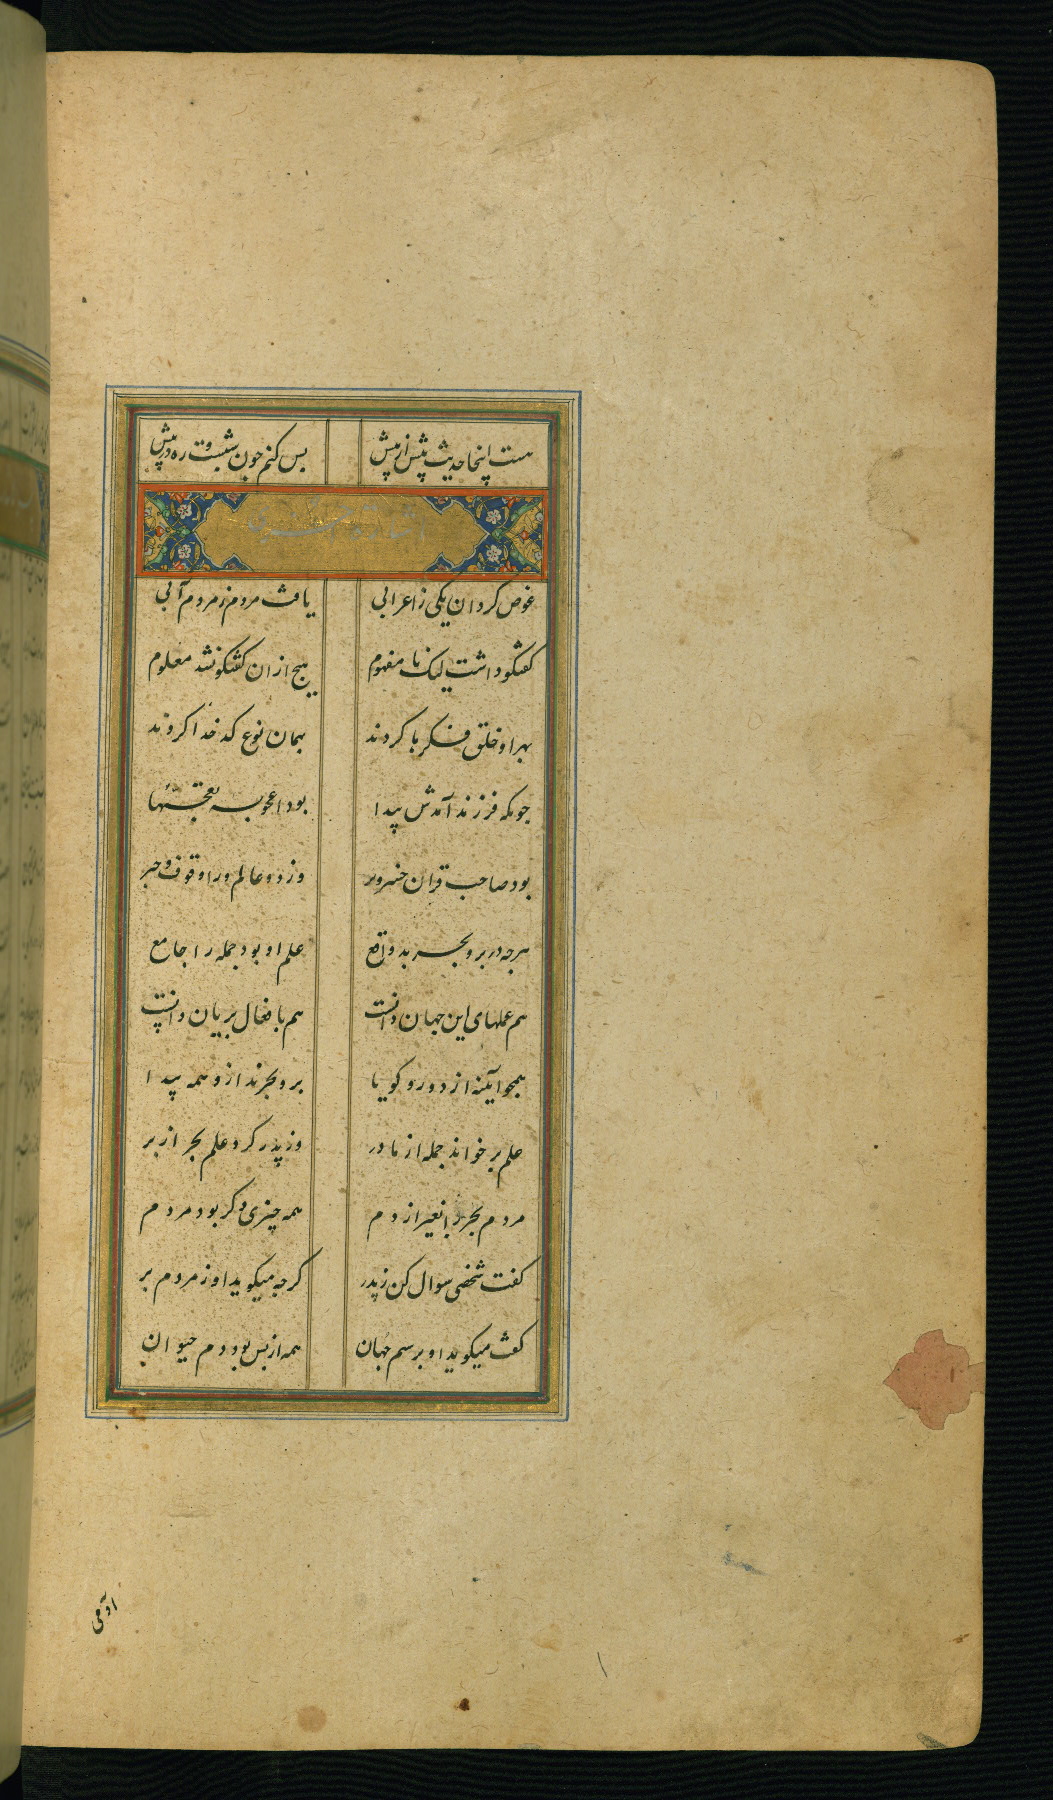 هست اینجا حدیث بیش از پیش بس کنم چون شب است و ره در پیش
غوص کرد آن یکی ز اعرابی یافت مردم ز مردم آبی
گفتگو داشت لیک نامفهوم هیچ از ان گفتگو نشد معلوم
بهر او خلق فکرها کردند بهمان نوع کدخدا کردند
چونکه فرزند آمدش پیدا بود اعجوبه
بود صاحب قران وز دو عالم ورا وقوف و خبر
هرچه در بر و بحر بد واقع علم او بود جمله را جامع
هم عملهای این جهان دانست هم بافعال بریان دانست
همچو آینه از دو رو گویا بر و بحرند از و همه پیدا
علم بر خواند جمله از مادر وز پدر کرد علم بحر از بر
مردم بحر را بغیر از دم همه چیزی دگر بود مردم
گفت شخصی سوال کن ز پدر گرچه میگوید او ز مردم بر
گفت میگوید او برسم جهان همه از پس بود دم حیوان
آدمی